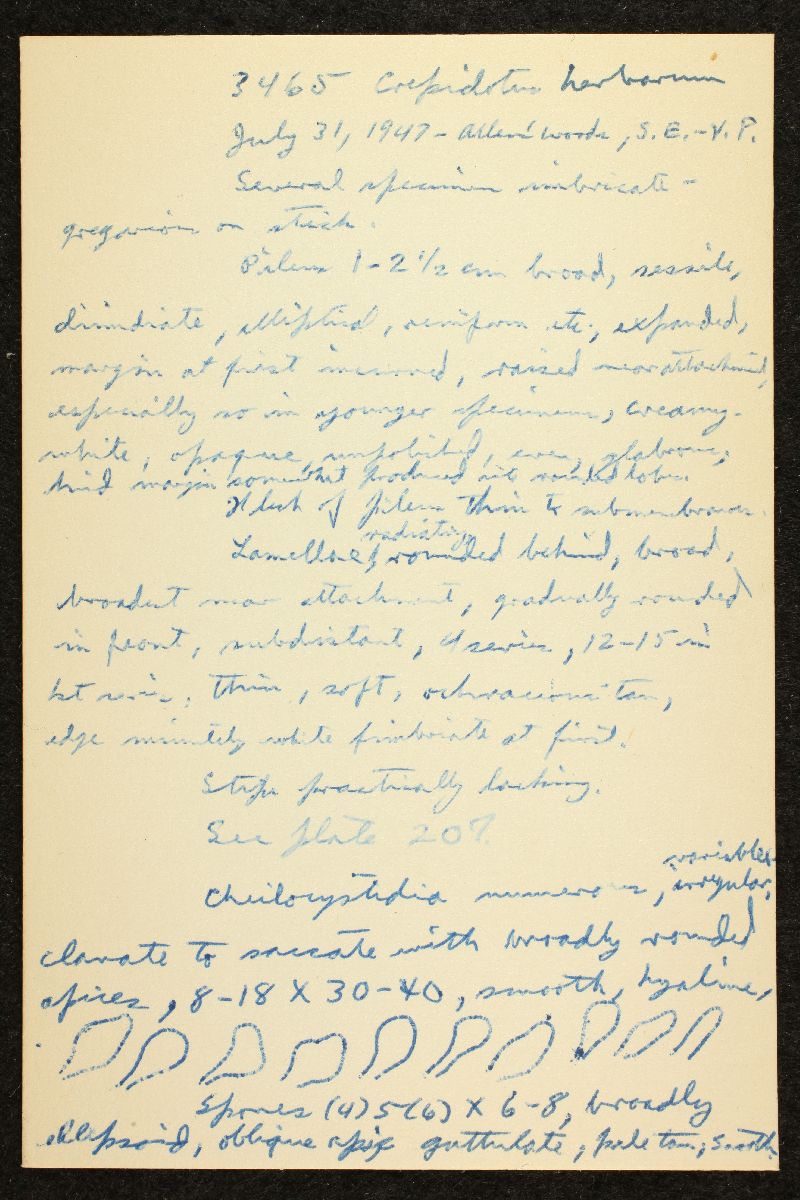 3465 Crepidotus herbarum
July 31, 1947 - Allen's Woods, S.E.-V.P.
Several specimen imbricate -
gregarious on stick.
Pileus 1-2 1/2 cm broad, sessile,
dimidiate, elliptical, reniform etc., expanded,
margin at first incurved, raised near attachment,
especially so in younger specimens, creamy-
white, opaque, unpolished, even, glabrous,
hind margin somewhat produced into rounded lobes.
Flesh of pileus thin to submembranous.
radiating,
Lamellae rounded behind, broad,
broadest near attachment, gradually rounded
in front, subdistant, 4 series, 12-15 in
1st series, thin, soft, ochraceous tan,
edge minutely white fimbriate at first.
Stipe practically lacking.
See plate 207.
variable,
Cheilocystidia numerous, irregular,
clavate to saccate with broadly rounded
apices, 8-18 X 30-40, smooth, hyaline,
Spores (4) 5 (6) X 6-8, broadly
ellipsoid, oblique apix guttulate, pale tan, smooth